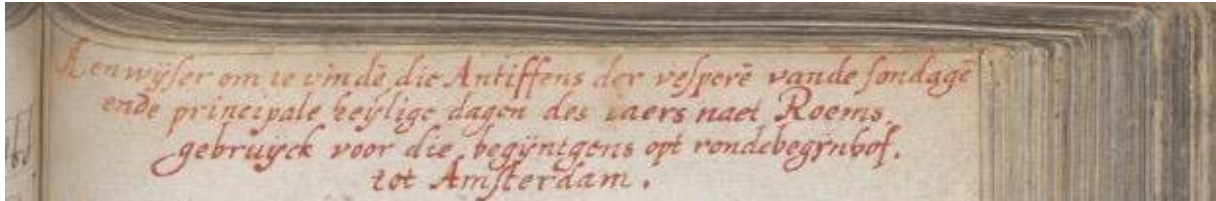 Aenwyser om te vindē die Antiffens der vesperē vande sondagē
ende principale heylige dagen des iaers naet Roems
gebruyck voor die begyntgens opt rondebegynhof.
tot Amsterdam.